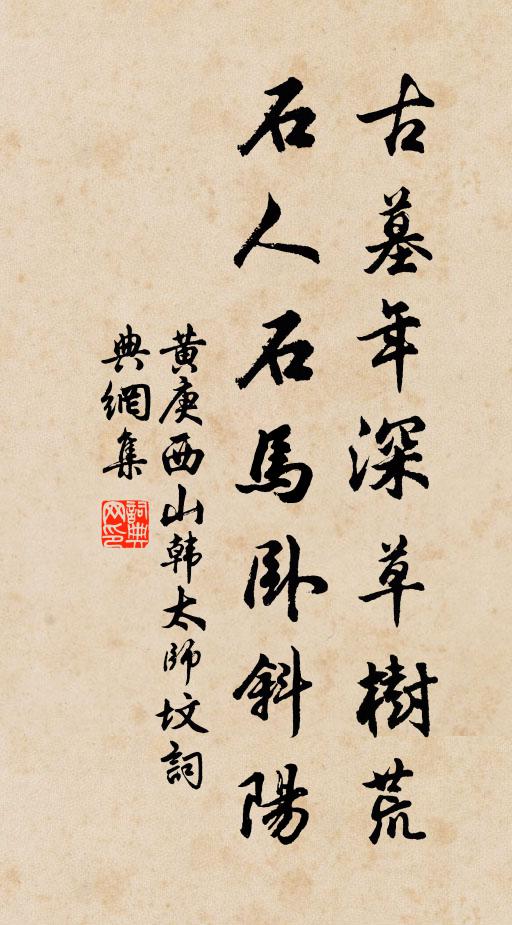 古墓年深草樹荒
石人石馬臥斜陽
黄庚西山韩太師坟詞
典網集
詞典网印